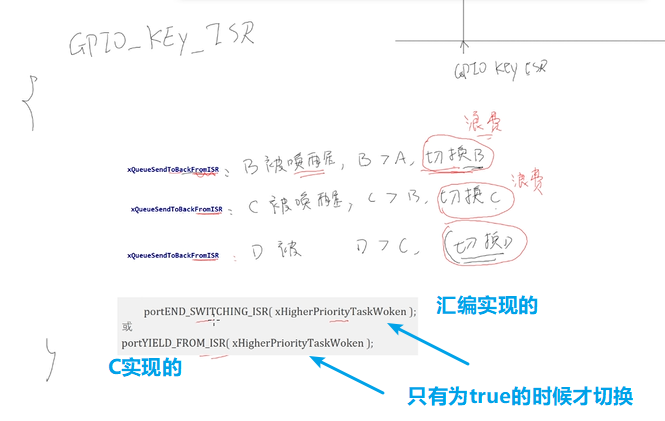 GPIO_KEY_ISR
GPIO KEY ISR
{
浪费
xQueueSendToBackFromISR : B 被唤醒, B > A, 切换B
浪费
xQueueSendToBackFromISR : C 被唤醒, C > B, 切换C
xQueueSendToBackFromISR : D 被 D > C, 切换D
portEND_SWITCHING_ISR( xHigherPriorityTaskWoken );
汇编实现的
或
portYIELD_FROM_ISR( xHigherPriorityTaskWoken );
}
C实现的
只有为true的时候才切换